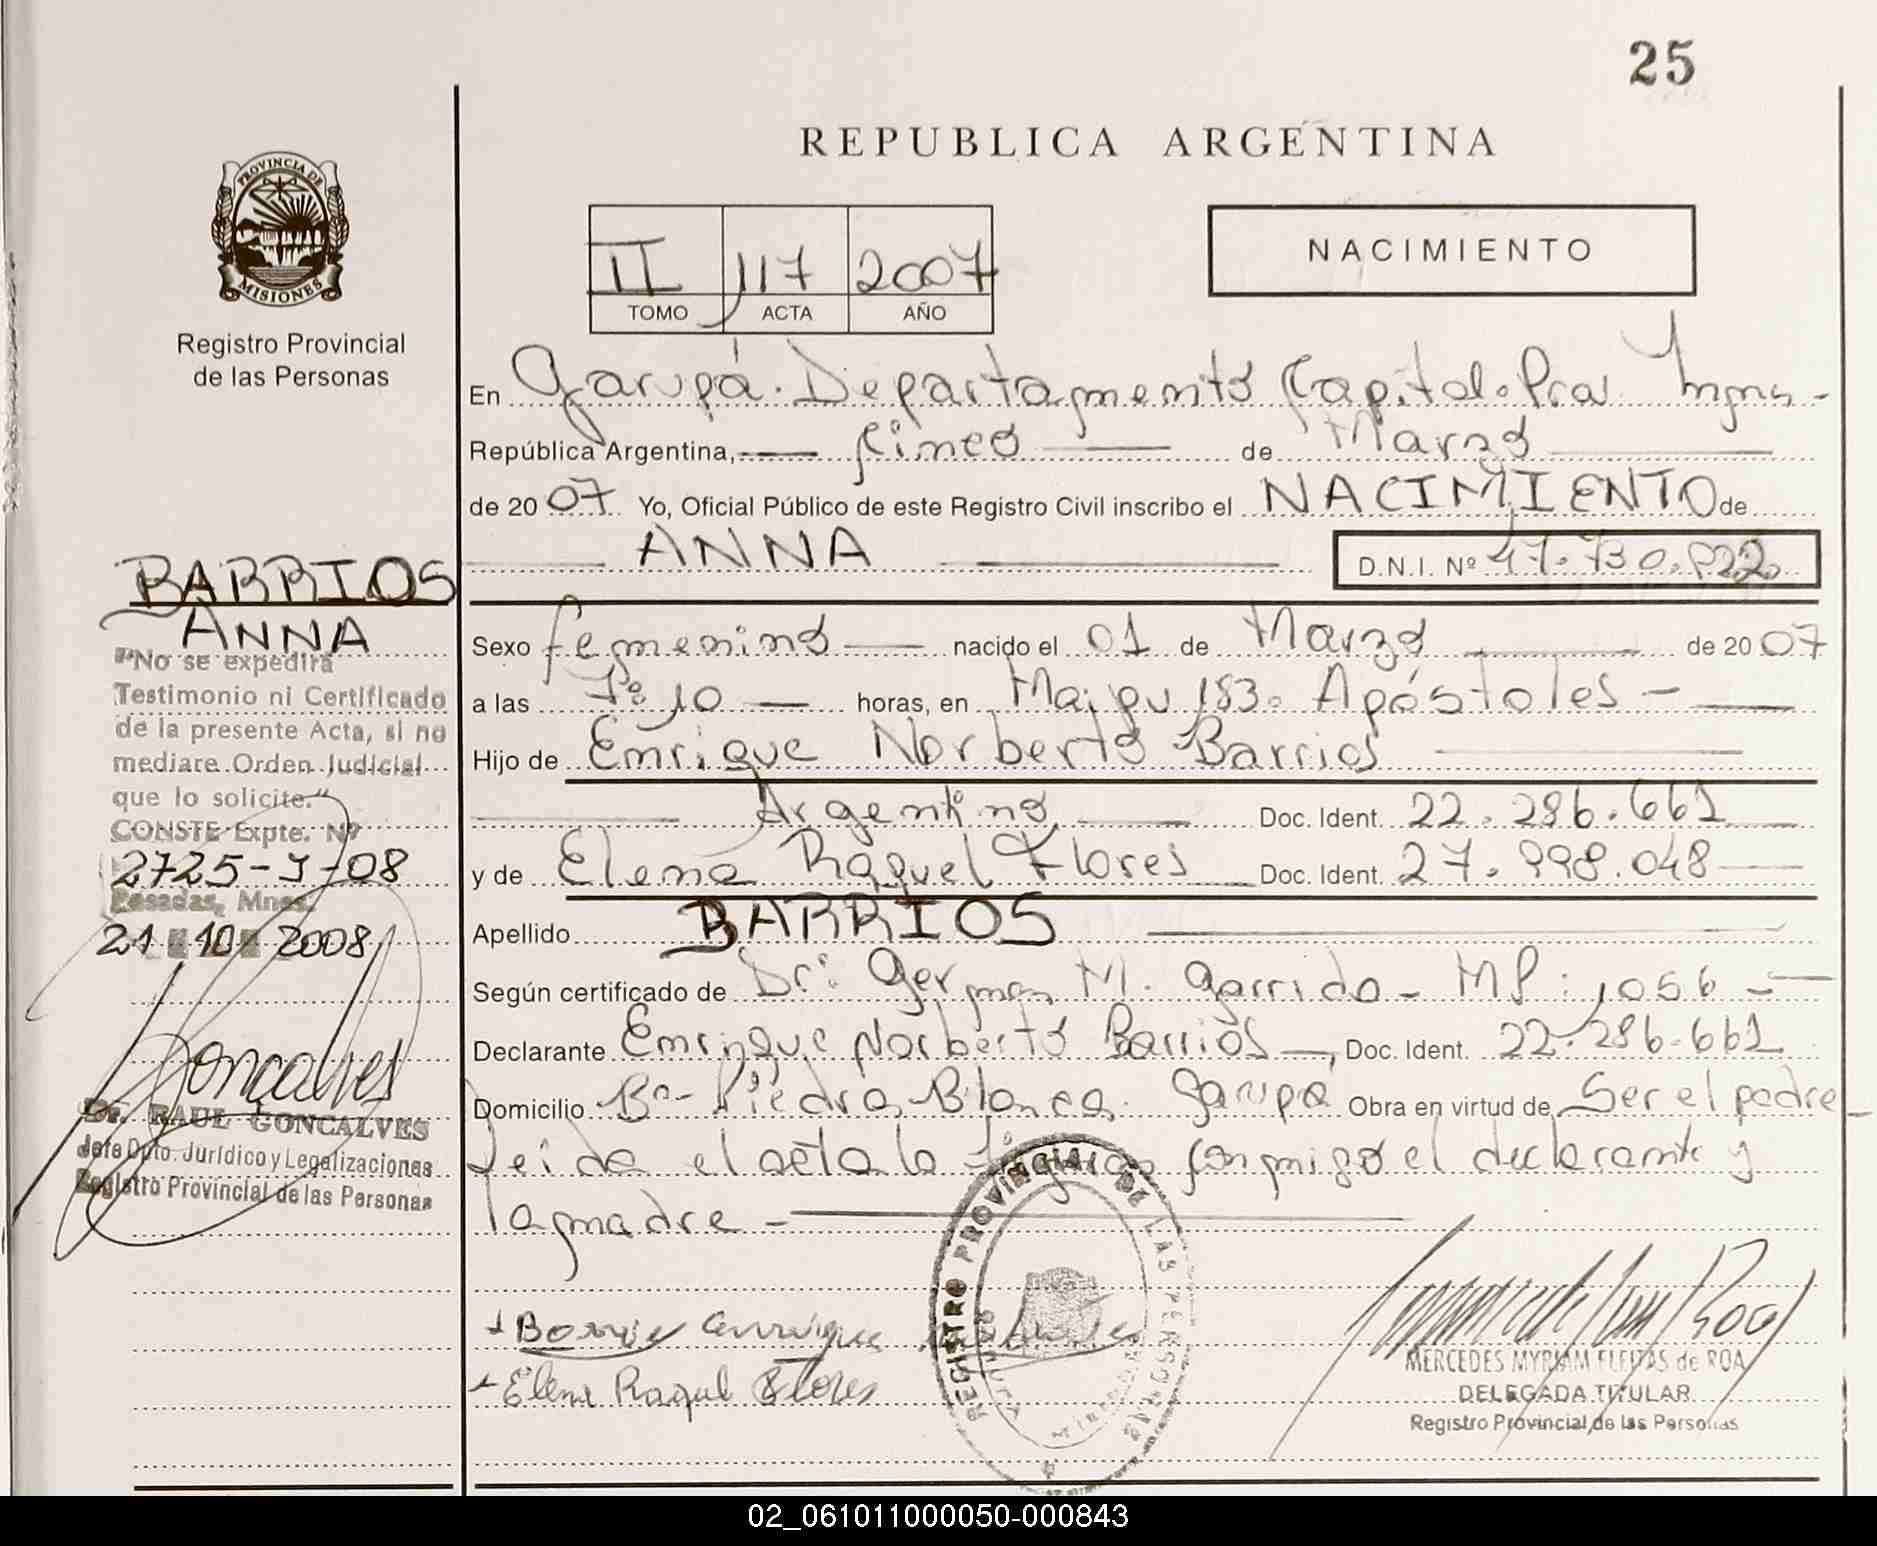 25
REPUBLICA ARGENTINA
PROVINCIA DE
MISIONES
Registro Provincial
de las Personas
II 117 2007
TOMO ACTA AÑO
NACIMIENTO
En Garupá. Departamento Capital. Pcia. Mnes-
República Argentina, Cinco de Marzo
de 2007 Yo, Oficial Público de este Registro Civil inscribo el NACIMIENTO de
ANNA D.N.I. Nº 47.730.822
BARRIOS
ANNA
"No se expedirá
Testimonio ni Certificado
de la presente Acta, si no
mediare Orden Judicial
que lo solicite."
CONSTE Expte. Nº
2725-J-08
Posadas, Mnes.
21 10 2008
Goncalves
Dr. RAUL GONCALVES
Jefe Dpto. Jurídico y Legalizaciones
Registro Provincial de las Personas
Sexo femenino nacido el 01 de Marzo de 2007
a las 7:10 horas, en Maipu 183. Apóstoles -
Hijo de Enrique Norberto Barrios
Argentino Doc. Ident. 22.286.661
y de Elena Raquel Flores Doc. Ident. 27.998.048
Apellido BARRIOS
Según certificado de Dr: German M. Garrido - MP: 1056 -
Declarante Enrique Norberto Barrios -, Doc. Ident. 22.286.661
Domicilio Bº- Piedra Blanca. Garupá Obra en virtud de Ser el padre-
Leida el acta la firman conmigo el declarante y
la madre -
Barrios Enrique
Elena Raquel Flores
REGISTRO PROVINCIAL DE LAS PERSONAS
GARUPA
MISIONES
MERCEDES MYRIAM FLEITAS de ROA
DELEGADA TITULAR
Registro Provincial de las Personas
02_061011000050-000843